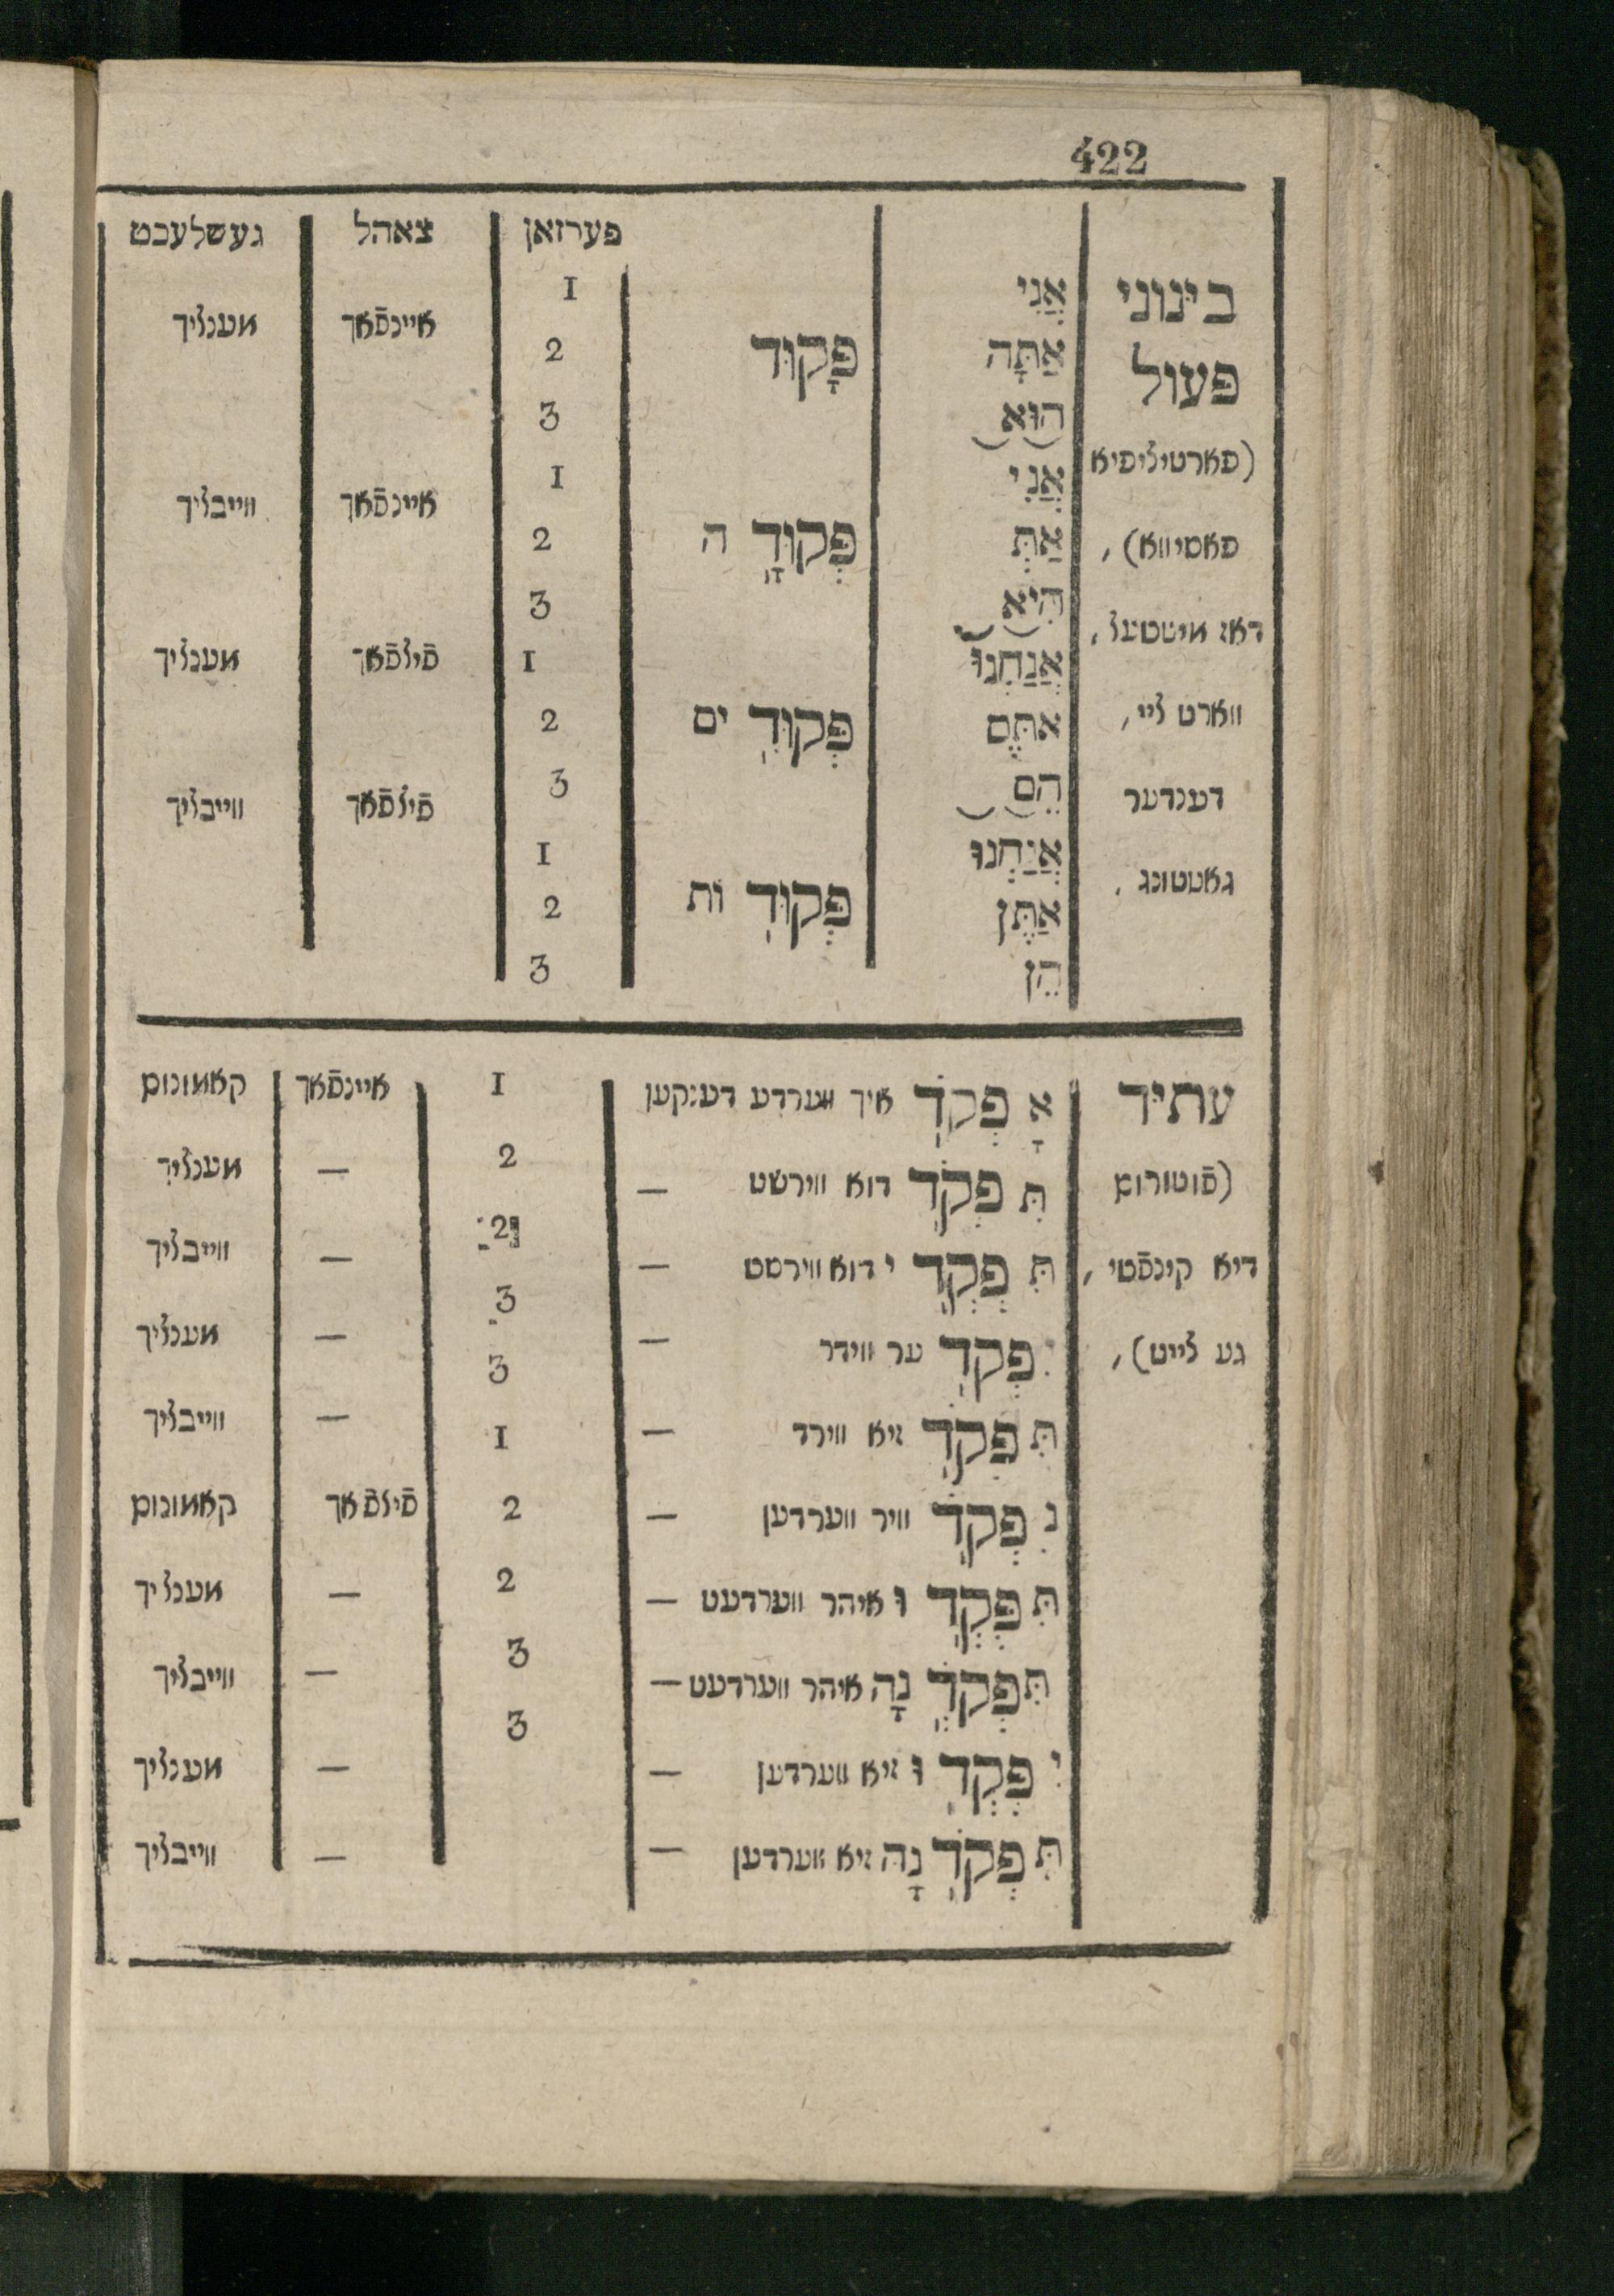 422
פערזאן צאהל געשלעכט
בינוני פעול (פארטיליפיא פאסיווא), דאז מיטטעל, ווארט ליי, דענדער גאטטונג,
אֲנִי 1
אַתָּה פָּקוּד 2 איינפֿאך מענליך
הוּא 3
אֲנִי 1
אַתְּ פְּקוּדָ ה 2 איינפֿאך ווייבליך
הִיא 3
אֲנַחְנוּ 1 פֿילפֿאך מענליך
אתֶּם פְּקוּדִ ים 2
הֵם 3 פֿילפֿאך ווייבליך
אֲנַחְנוּ 1
אַתֶּן פְּקוּד וֹת 2
הֵן 3
עתיד
(פֿוטורוס
דיא קינפֿטי,
גע לייט),
אֶ פְקֹד איך ווערדע דענקען 1 איינפֿאך קאמונוס
תִּ פְקֹד דוא ווירשט — 2 — מענליך
תִּ פְקְד י דוא ווירסט — 2 — ווייבליך
יִ פְקֹד ער ווידר — 3 — מענליך
תִּ פְקֹד זיא ווירד — 3 — ווייבליך
נִ פְקֹד וויר ווערדען — 1 פֿילפֿאך קאמונוס
תִּ פְקְד וּ איהר ווערדעט — 2 — מענליך
תִּ פְקֹדְ נָה איהר ווערדעט — 2 — ווייבליך
יִ פְקְד וּ זיא ווערדען — 3 — מענליך
תִּ פְקֹד נָה זיא ווערדען — 3 — ווייבליך